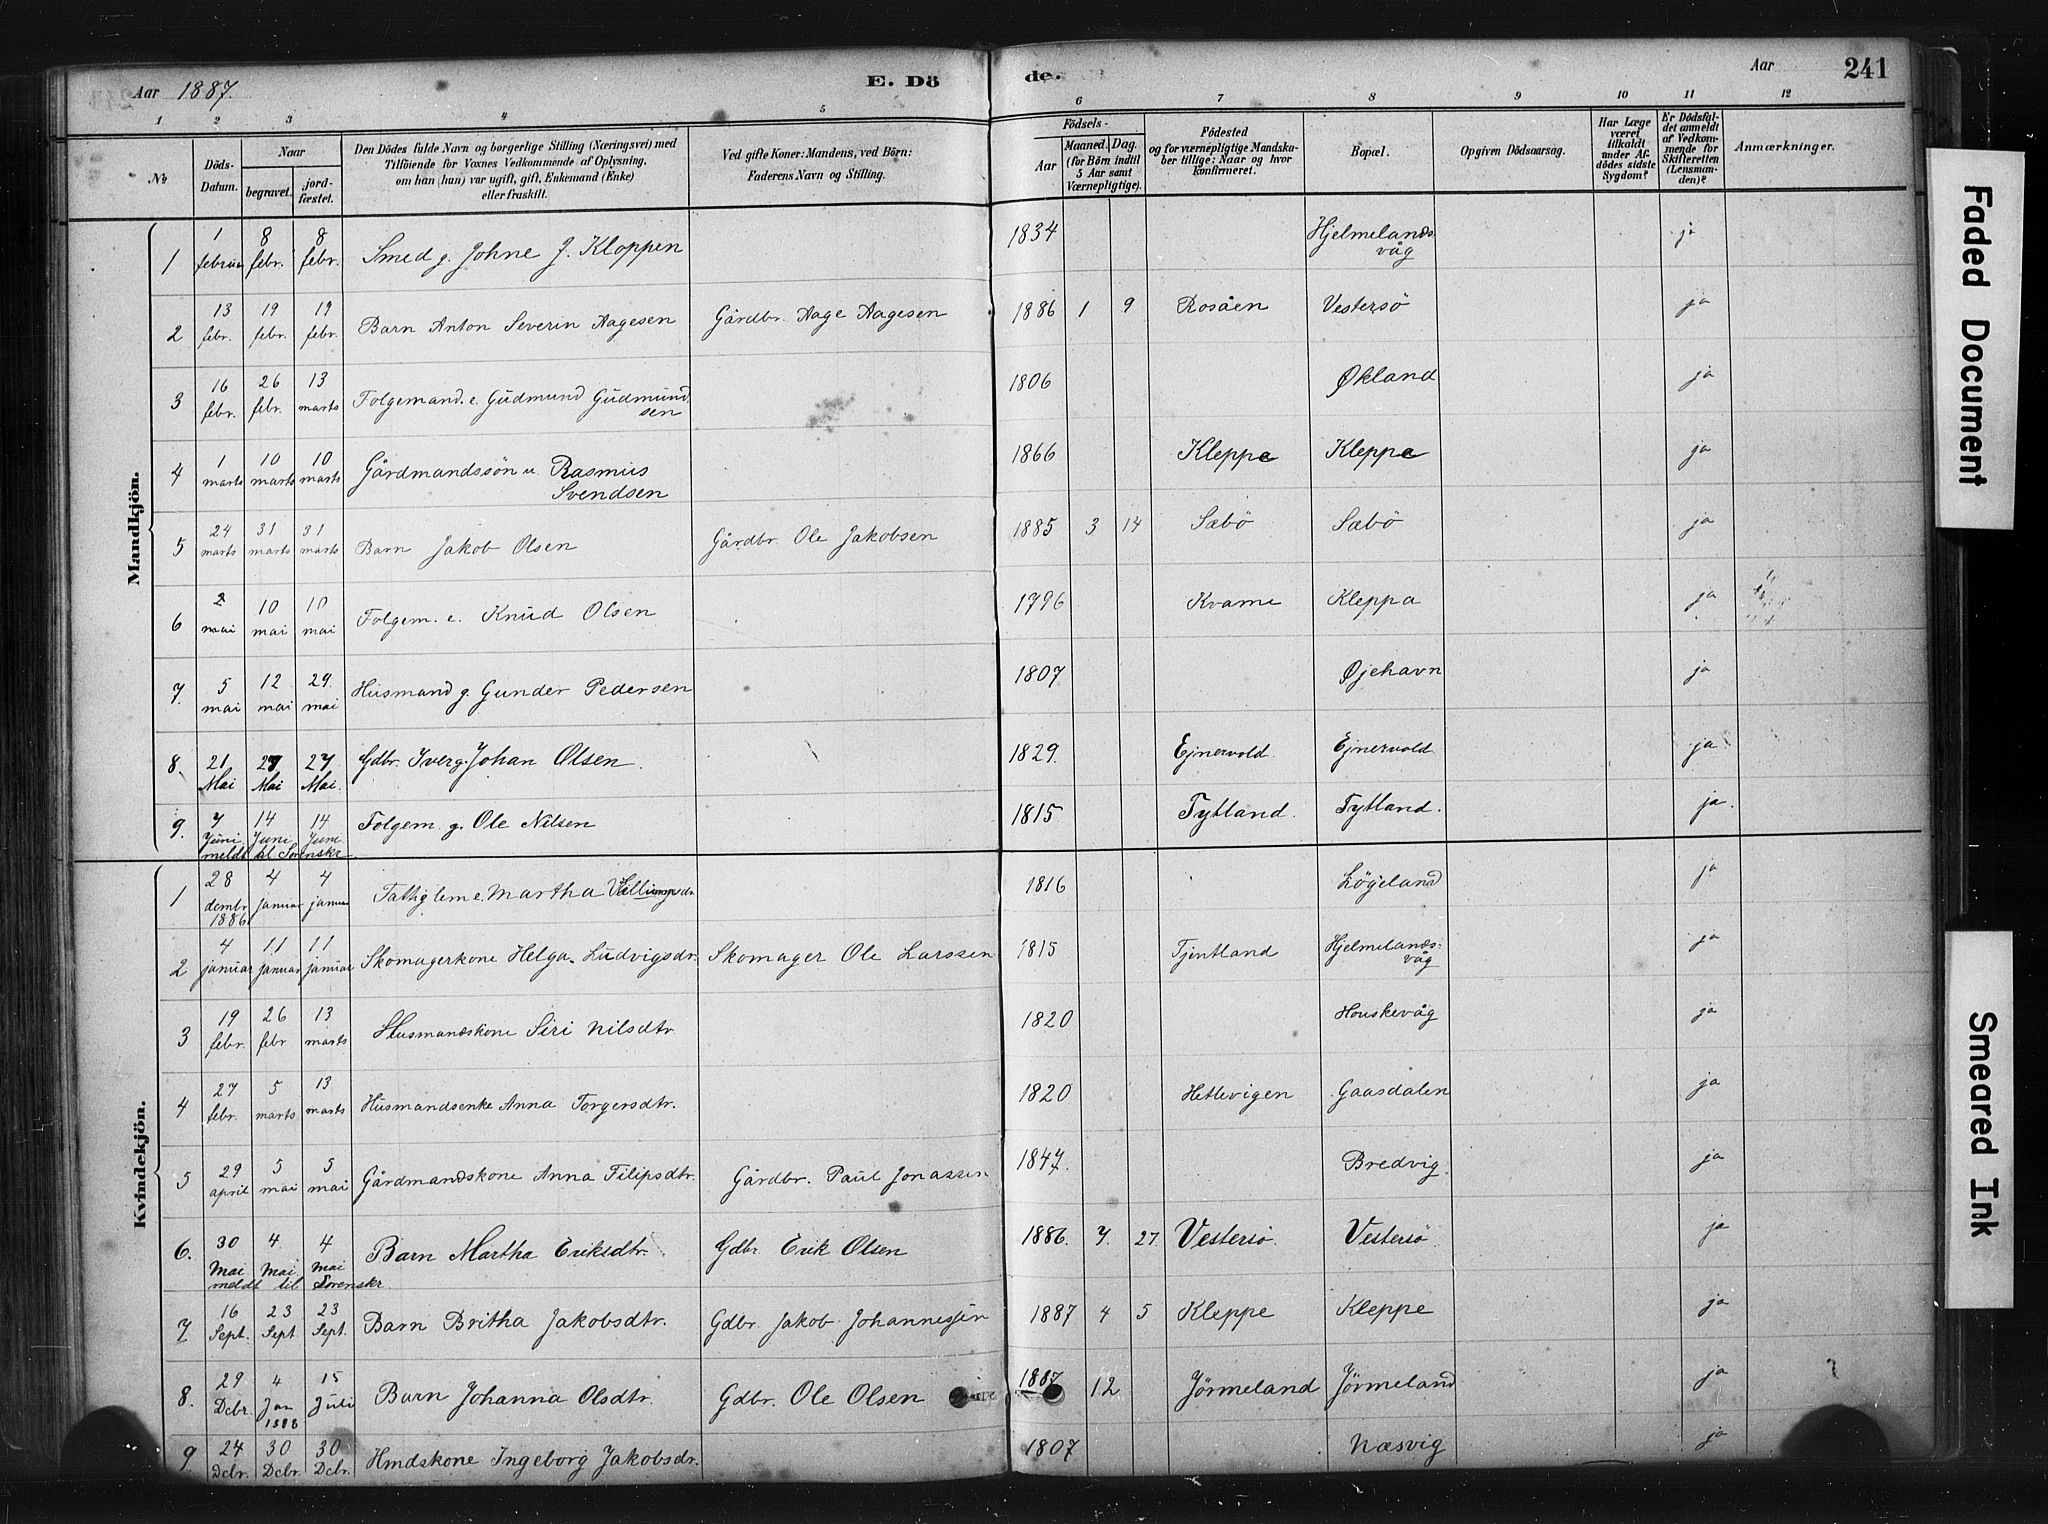 Aar 1887.
E. Dö
de.
Aar
241
1 2 3 4 5 6 7 8 9 10 11 12
No
Döds-Datum.
Naar
begravet.
jordfæstet.
Den Dödes fulde Navn og borgerlige Stilling (Næringsvei) med
Tilföiende for Voxnes Vedkommende af Oplysning,
om han (hun) var ugift, gift, Enkemand (Enke)
eller fraskilt.
Ved gifte Koner: Mandens, ved Börn:
Faderens Navn og Stilling.
Födsels-
Aar
Maaned. Dag.
(for Börn indtil
5 Aar samt
Værnepligtige).
Födested
og for værnepligtige Mandskaber tillige: Naar og hvor
Konfirmeret.
Bopæl.
Opgiven Dödsaarsag.
Har Læge
været
tilkaldt
under Afdödes sidste
Sygdom?
Er Dödsfaldet anmeldt
af Vedkommende for
Skifteretten
(Lensmanden)?
Anmærkninger.
Mandkjön.
1 1 februar 8 febr. 8 febr. Smed g. Johne J. Kloppen 1834 Hjelmelandsvåg ja
2 13 febr. 19 febr. 19 febr. Barn Anton Severin Aagesen Gårdbr. Aage Aagesen 1886 1 9 Rosåen Vestersö ja
3 16 febr. 26 febr. 13 marts Folgemand. e. Gudmund Gudmundsen 1806 Økland ja
4 1 marts 10 marts 10 marts Gårdmandssön u. Rasmus Svendsen 1866 Kleppe Kleppe ja
5 24 marts 31 marts 31 marts Barn Jakob Olsen Gårdbr. Ole Jakobsen 1885 3 14 Sæbö Sæbö ja
6 2 mai 10 mai 10 mai Folgem. e. Knud Olsen 1796 Kvame Kleppa ja
7. 5 mai 12 mai 29. mai Husmand g. Gunder Pedersen 1807 Øjehavn ja
8. 21 Mai 27 Mai 27 Mai. Gdbr. Iver g. Johan Olsen. 1829. Ejnervold Ejnervold ja
9. 7 Juni 14 Juni 14 Juni Folgem. g. Ole Nilsen 1815 Tytland. Tytland. ja.
meldt til Sorenskr
Kvindekjön.
1 28 dembr 1886 4 januar 4 januar Fattiglem e. Martha 1816 Løgeland ja
2 4 januar 11 januar 11 januar Skomagerkone Helga Ludvigsdr. Skomager Ole Larssen 1815 Tjentland Hjelmelandsvåg ja
3 19 febr. 26 febr 13 marts Husmandskone Siri Nilsdtr 1820 Houskevåg ja
4 27 febr. 5 marts 13 marts Husmandsenke Anna Torgersdtr. 1820 Hetlevigen Gaasdalen ja
5 29 april 5 mai 5 mai Gårdmandskone Anna Filipsdtr. Gårdbr. Paul Jonassen 1847. Bredvig. ja
6. 30 Mai 4. Mai 4 Mai Barn Martha Eriksdtr. Gdbr. Erik Olsen 1886. 7. 27. Vestersö. Vestersö. ja
meldt til Sorenskr
7 16 Sept. 23 Sept. 23 Sept. Barn Britha Jakobsdtr. Gdbr. Jakob Johannessen 1887 4 5 Kleppe Kleppe ja
8. 29 Dcbr. 4 Jan 1888 15 Juli Barn Johanna Olsdtr. Gdbr. Ole Olsen 1887 12 Jörmeland Jörmeland ja
9. 24 Dcbr. 30 Dcbr. 30 Dcbr. Hmdskone Ingeborg Jakobsdr. 1807 Næsvig ja
Faded Document
Smeared Ink